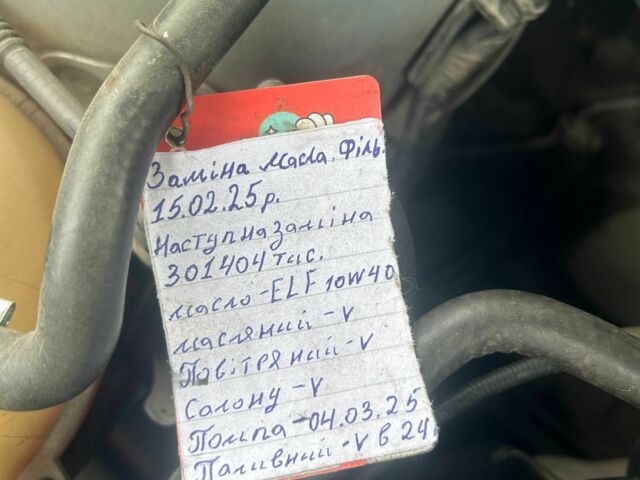 Заміна масла. Філь.
15.02.25р.
Наступна заміна
301404 тис.
масло-ELF 10W40
масляний -v
Повітряний -v
Салону -v
Помпа -04.03.25
Паливний -v в 24